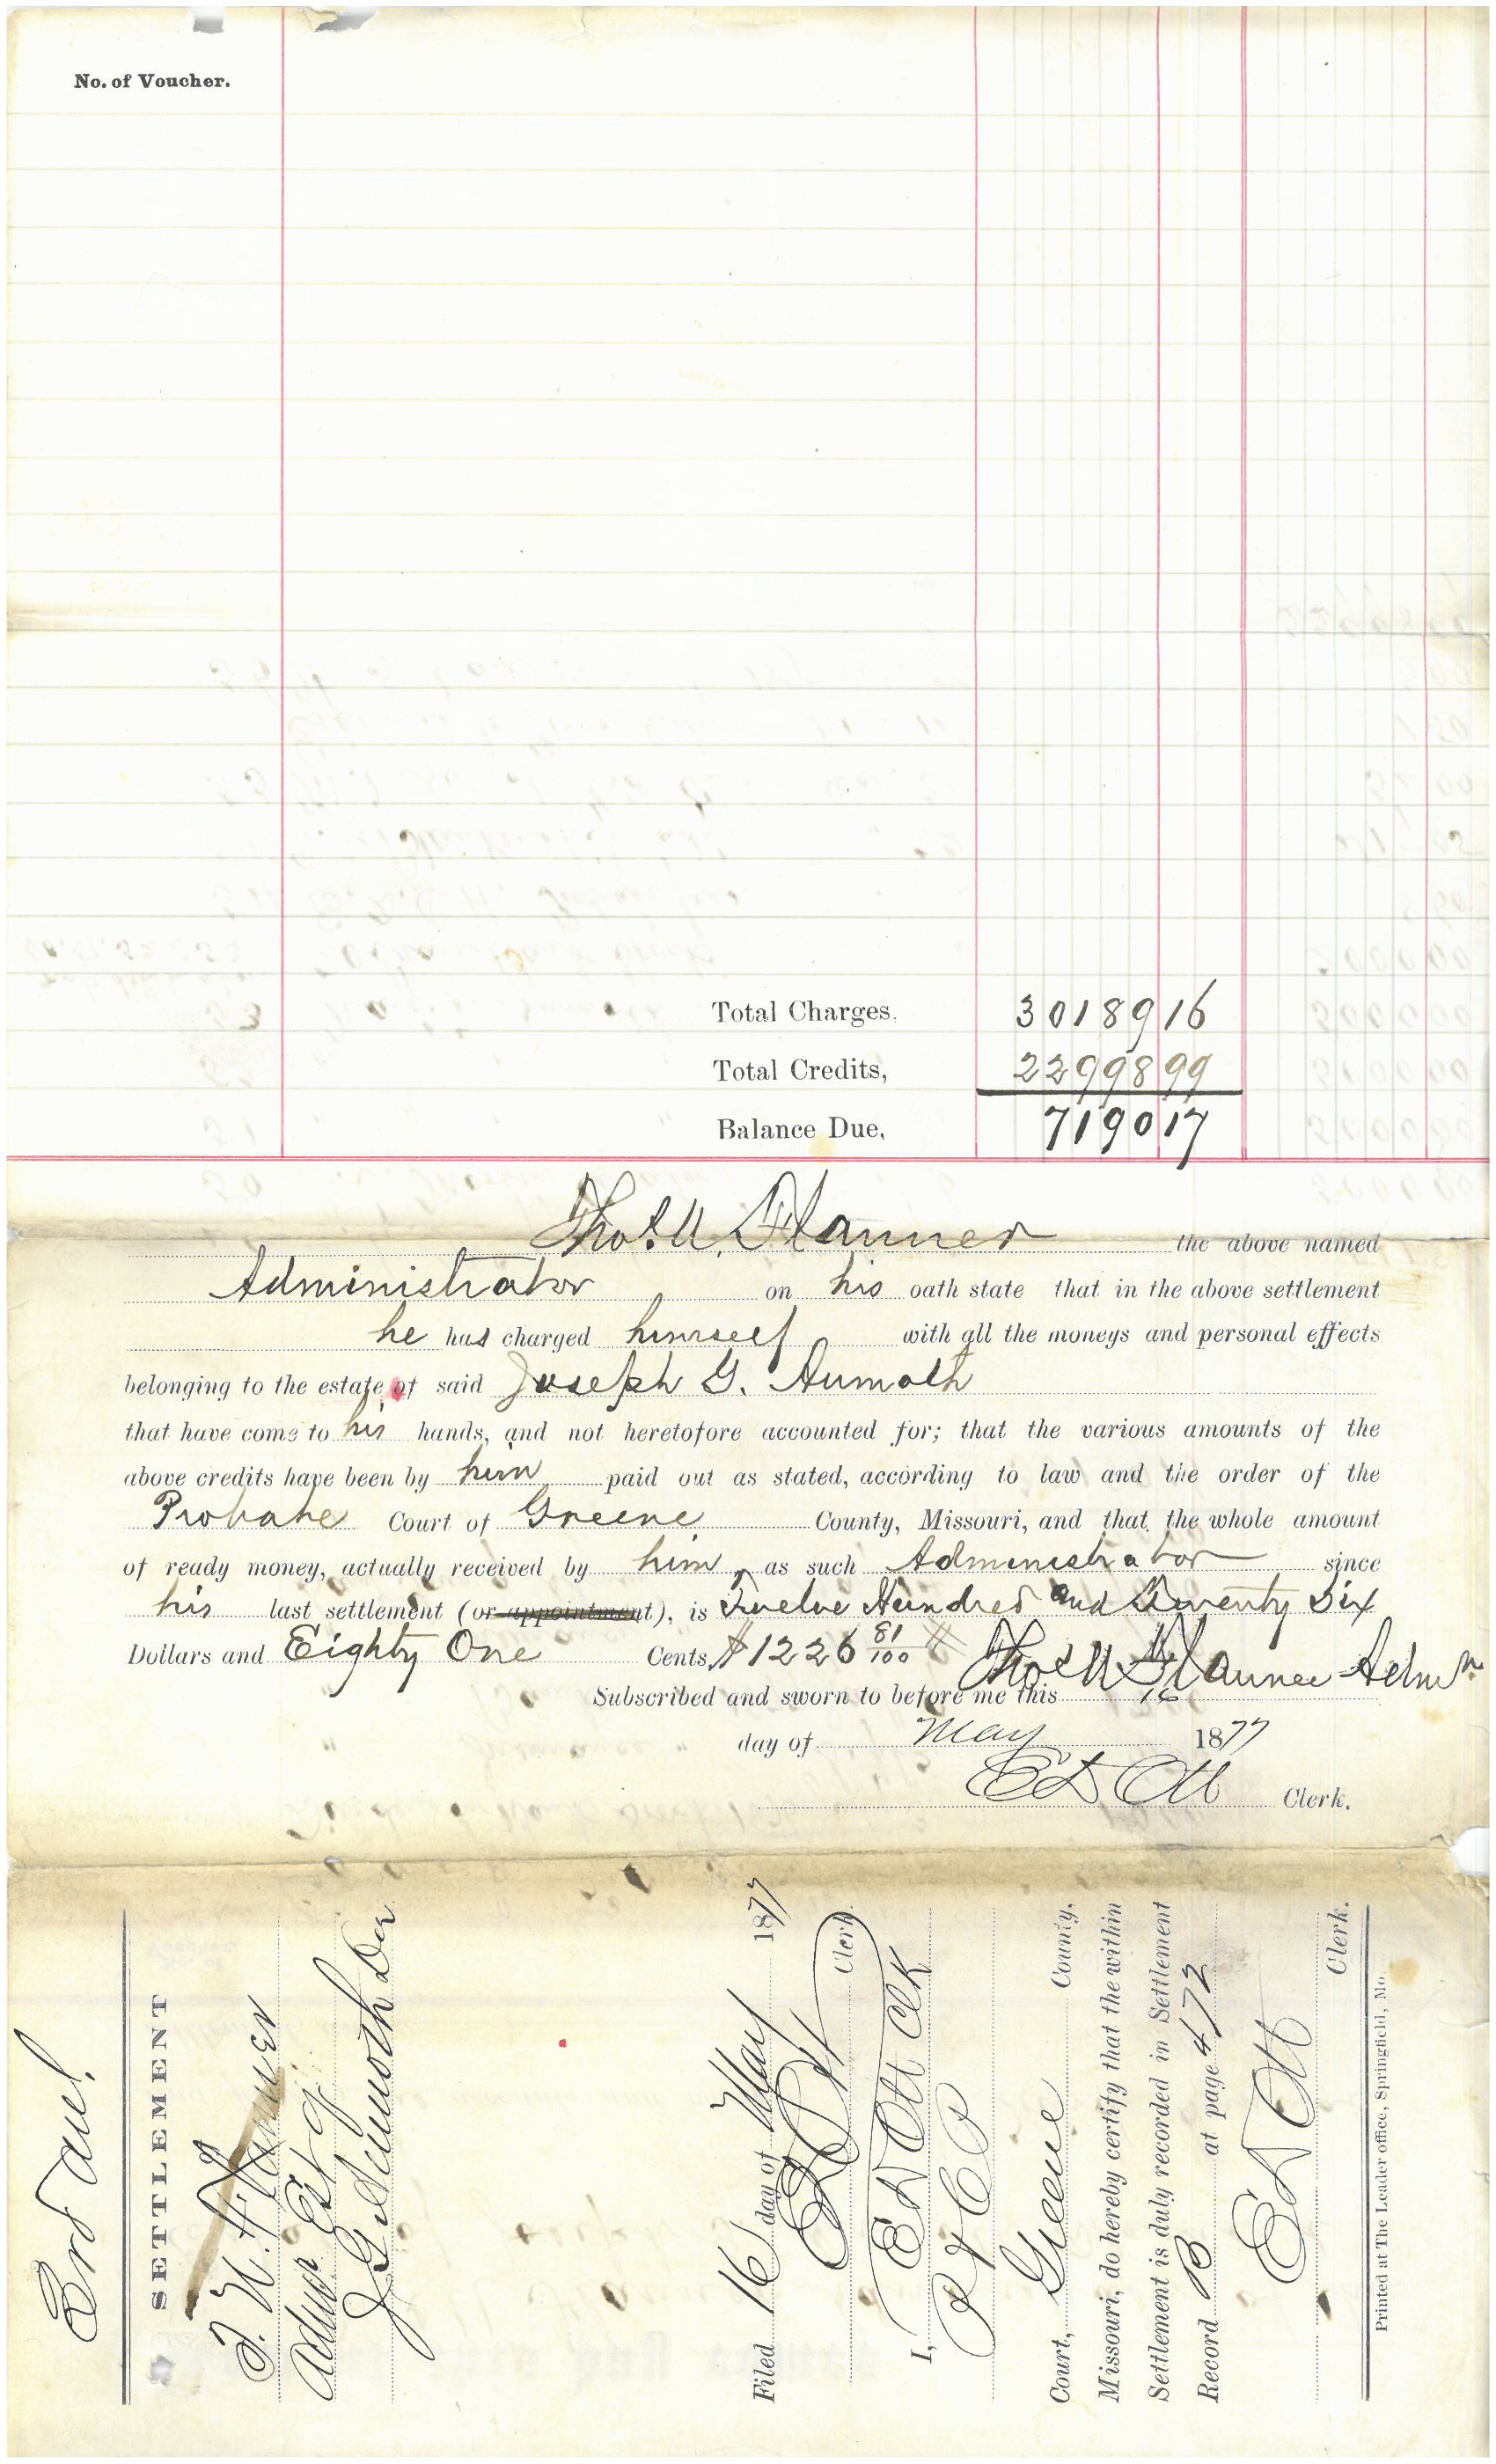 No. of Voucher.
Total Charges. 30189 16
Total Credits, 22998 99
Balance Due, 7190 17
Thos. U. Flanner the above named
Administrator on his oath state that in the above settlement
he has charged himself with all the moneys and personal effects
belonging to the estate of said Joseph G. Aumoth
that have come to his hands, and not heretofore accounted for; that the various amounts of the
above credits have been by him paid out as stated, according to law and the order of the
Probate Court of Greene County, Missouri, and that the whole amount
of ready money, actually received by him, as such Administrator since
his last settlement (or appointment), is Twelve Hundred and Twenty Six
Dollars and Eighty One Cents, $1226 81/100 Thos U Flanner Admr
Subscribed and sworn to before me this 16
day of May 1877
E D Ott Clerk.
3rd Anl.
SETTLEMENT
T. U. Flanner
Admr Est of
J G Aumoth Dec
Filed 16 day of May 1877
E D Ott Clerk.
I, E D Ott Clk
Court, Greene County,
Missouri, do hereby certify that the within
Settlement is duly recorded in Settlement
Record B at page 472
E D Ott Clerk.
Printed at The Leader office, Springfield, Mo.